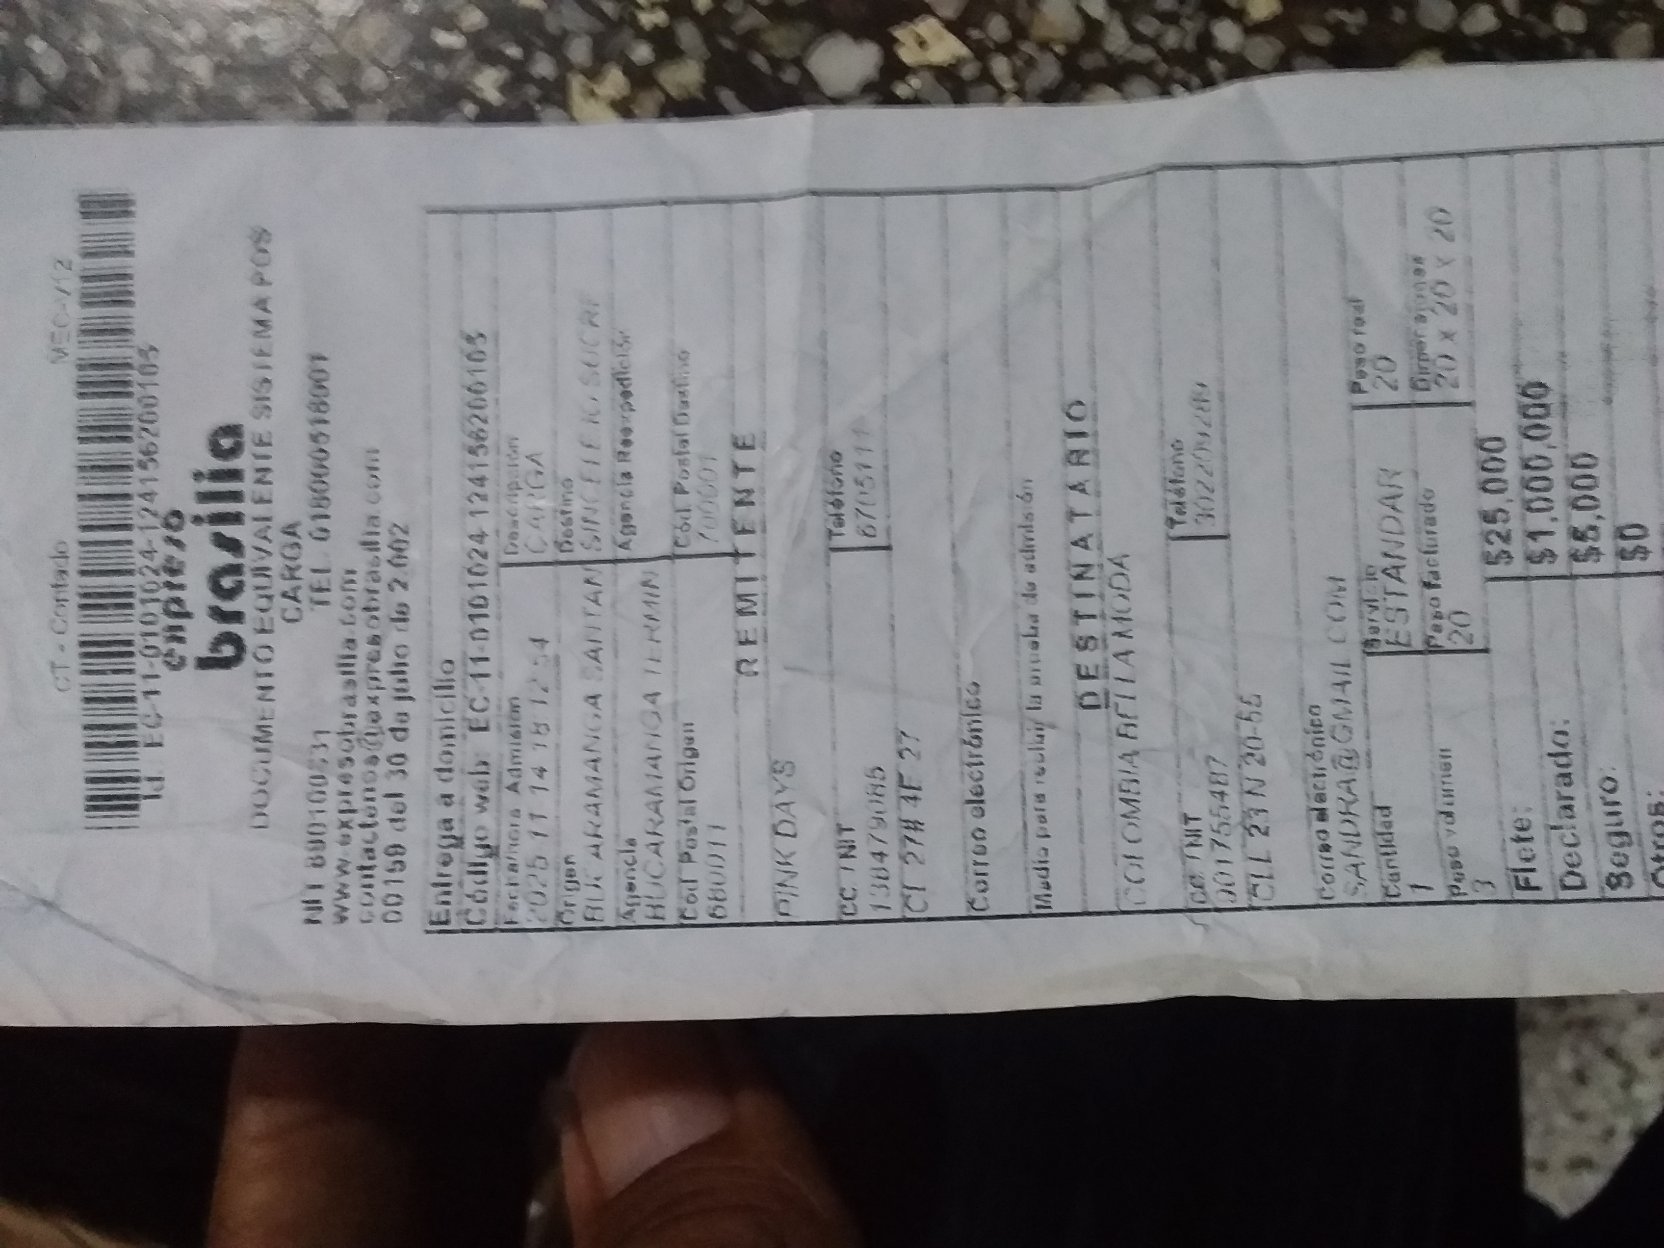 CT - Contado MEC-V12
Id. EC-11-0101024-1241562606163
expreso
brasilia
DOCUMENTO EQUIVALENTE SISTEMA POS
CARGA
NIT 890100531 TEL 018000518001
www.expresobrasilia.com
contactenos@expresobrasilia.com
00159 del 30 de julio de 2.002
Entrega a domicilio
Código web: EC-11-0101024-1241562606163
Fecha/Hora Admisión Descripción
2025 11 14 18 12:54 CARGA
Origen Destino
BUCARAMANGA SANTAN SINCELEJO SUCRE
Agencia Agencia Reexpedición
BUCARAMANGA TERMIN
Cod Postal Origen Cod Postal Destino
680011 700001
REMITENTE
PINK DAYS
CC / NIT Teléfono
130479085 6705111
CL 27# 4E 27
Correo electrónico
Medio para recibir la prueba de admisión
DESTINATARIO
COLOMBIA BELLA MODA
CC / NIT Teléfono
901755487
CLL 23 N 20-56
Correo electrónico
SANDRA@GMAIL.COM
Cantidad Servicio Peso real
1 ESTANDAR 20
Peso volumen Peso facturado Dimensiones
3 20 20 x 20 x 20
Flete: $25,000
Declarado: $1,000,000
Seguro: $8,000
Otros: $0